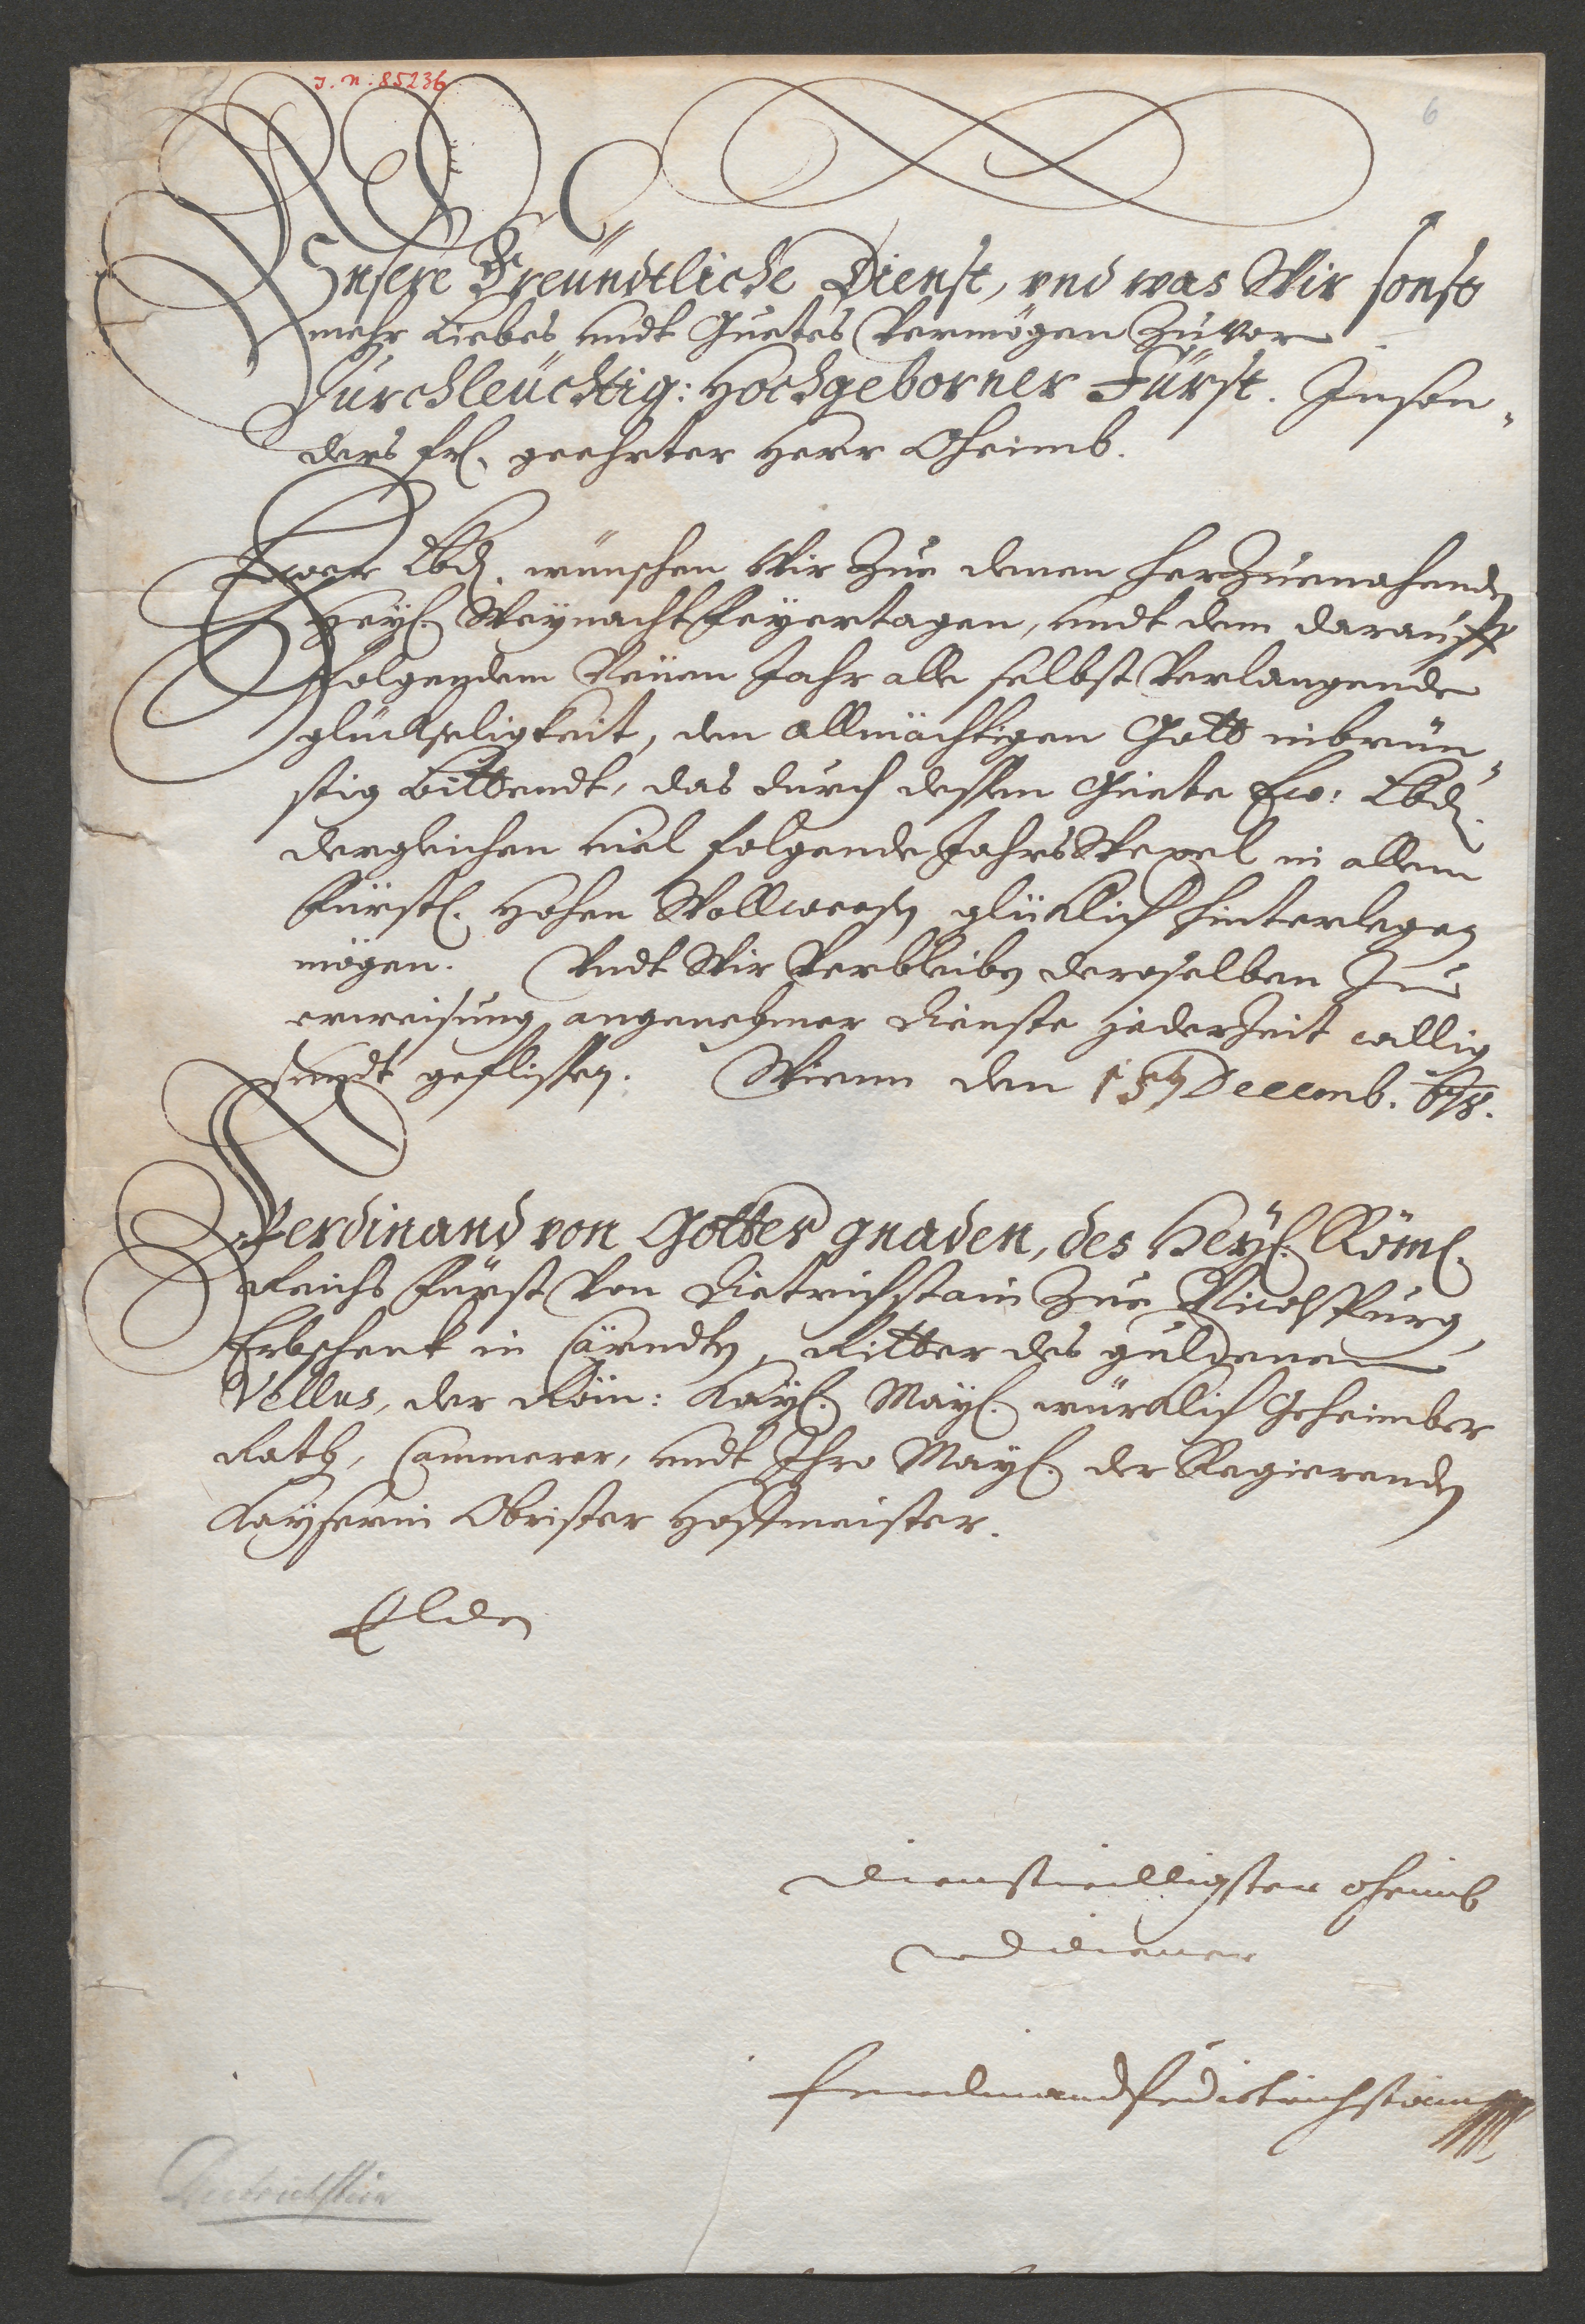 J. N: 85236
6
Vnsere Freündtliche Dienst, vnd was Wir sonst
mehr Liebes undt Guetes Vermögen Zuvor
Durchleüchtig: Hochgeborner Fürst. Inson-
ders frl. geehrter Herr Oheimb.
Ewer Lbd. wünschen Wir Zue denen herZuenahenden
Heyl. WeynachtFeyertagen, undt dem darauff
folgendem Neüen Jahr alle selbst Verlangende
glückseligkeit, den Allmächtigen Gott inbrün-
stig bittendt, das durch dessen Güete Ew: Lbd.
dergleichen viel folgende JahrsWexel in allem
Fürstl. Hohen Wollweesen glücklich hinterlegen
mögen. Vndt Wir Verbleiben deroselben Zu
erweisung angenehmer dienste jederZeit willig
undt geflissen. Wienn den 15 Decemb. 678.
Ferdinand von Gottes gnaden, des Heyl. Röml.
Reichs Fürst Von Dietrichstain Zue Nicolspurg,
Erbschenk in Cärndten, Ritter des guldenen
Vellus, der Röm: Kayl. Mayl. würcklich Geheimber
Rath, Cammerer, undt Ihro Mayl. der Regierenden
Kayserin Obrister Hoffmeister.
E Lden
dienstwilligster oheimb
vnd diener
Ferdinand F v dietrichstain
Dietrichstein